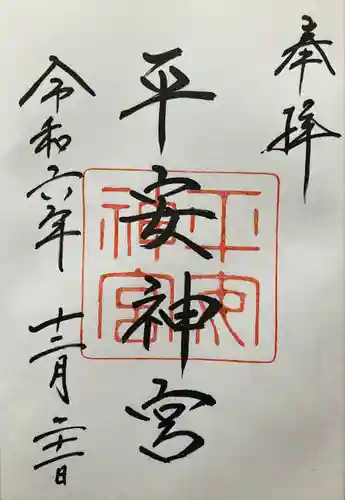 奉拝
平安神宮
平安神宮
令和六年 十二月 二十二日